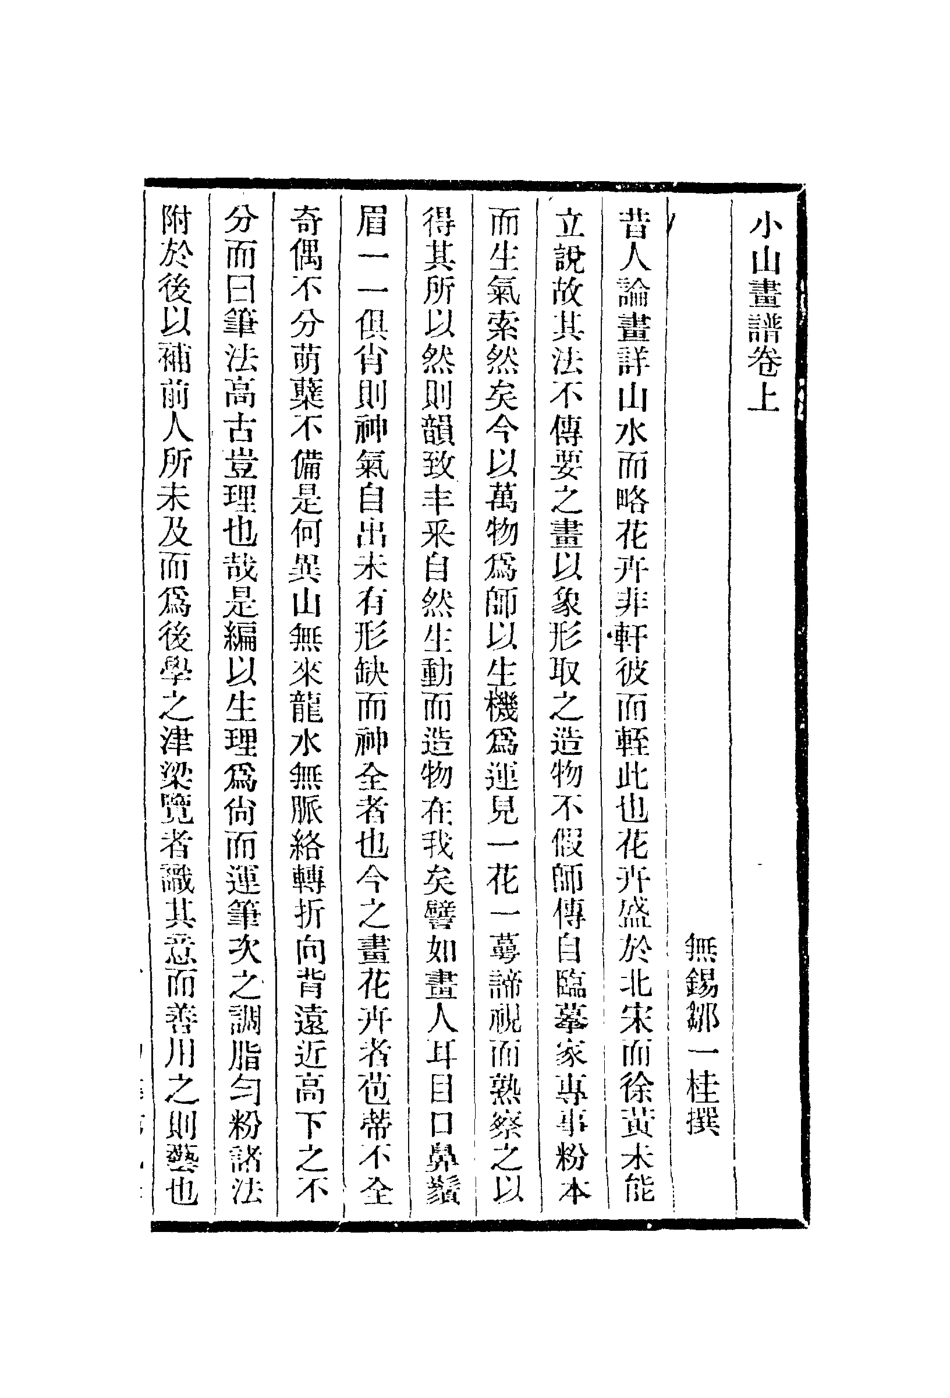 小山畫譜卷上
無錫鄒一桂撰
昔人論畫詳山水而略花卉非軒彼而輊此也花卉盛於北宋而徐黃未能
立說故其法不傳要之畫以象形取之造物不假師傳自臨摹家專事粉本
而生氣索然矣今以萬物爲師以生機爲運見一花一萼諦視而熟察之以
得其所以然則韻致丰采自然生動而造物在我矣譬如畫人耳目口鼻鬚
眉一一俱肖則神氣自出未有形缺而神全者也今之畫花卉者苞蒂不全
奇偶不分萌蘖不備是何異山無來龍水無脈絡轉折向背遠近高下之不
分而曰筆法高古豈理也哉是編以生理爲尚而運筆次之調脂勻粉諸法
附於後以補前人所未及而爲後學之津梁覽者識其意而善用之則藝也